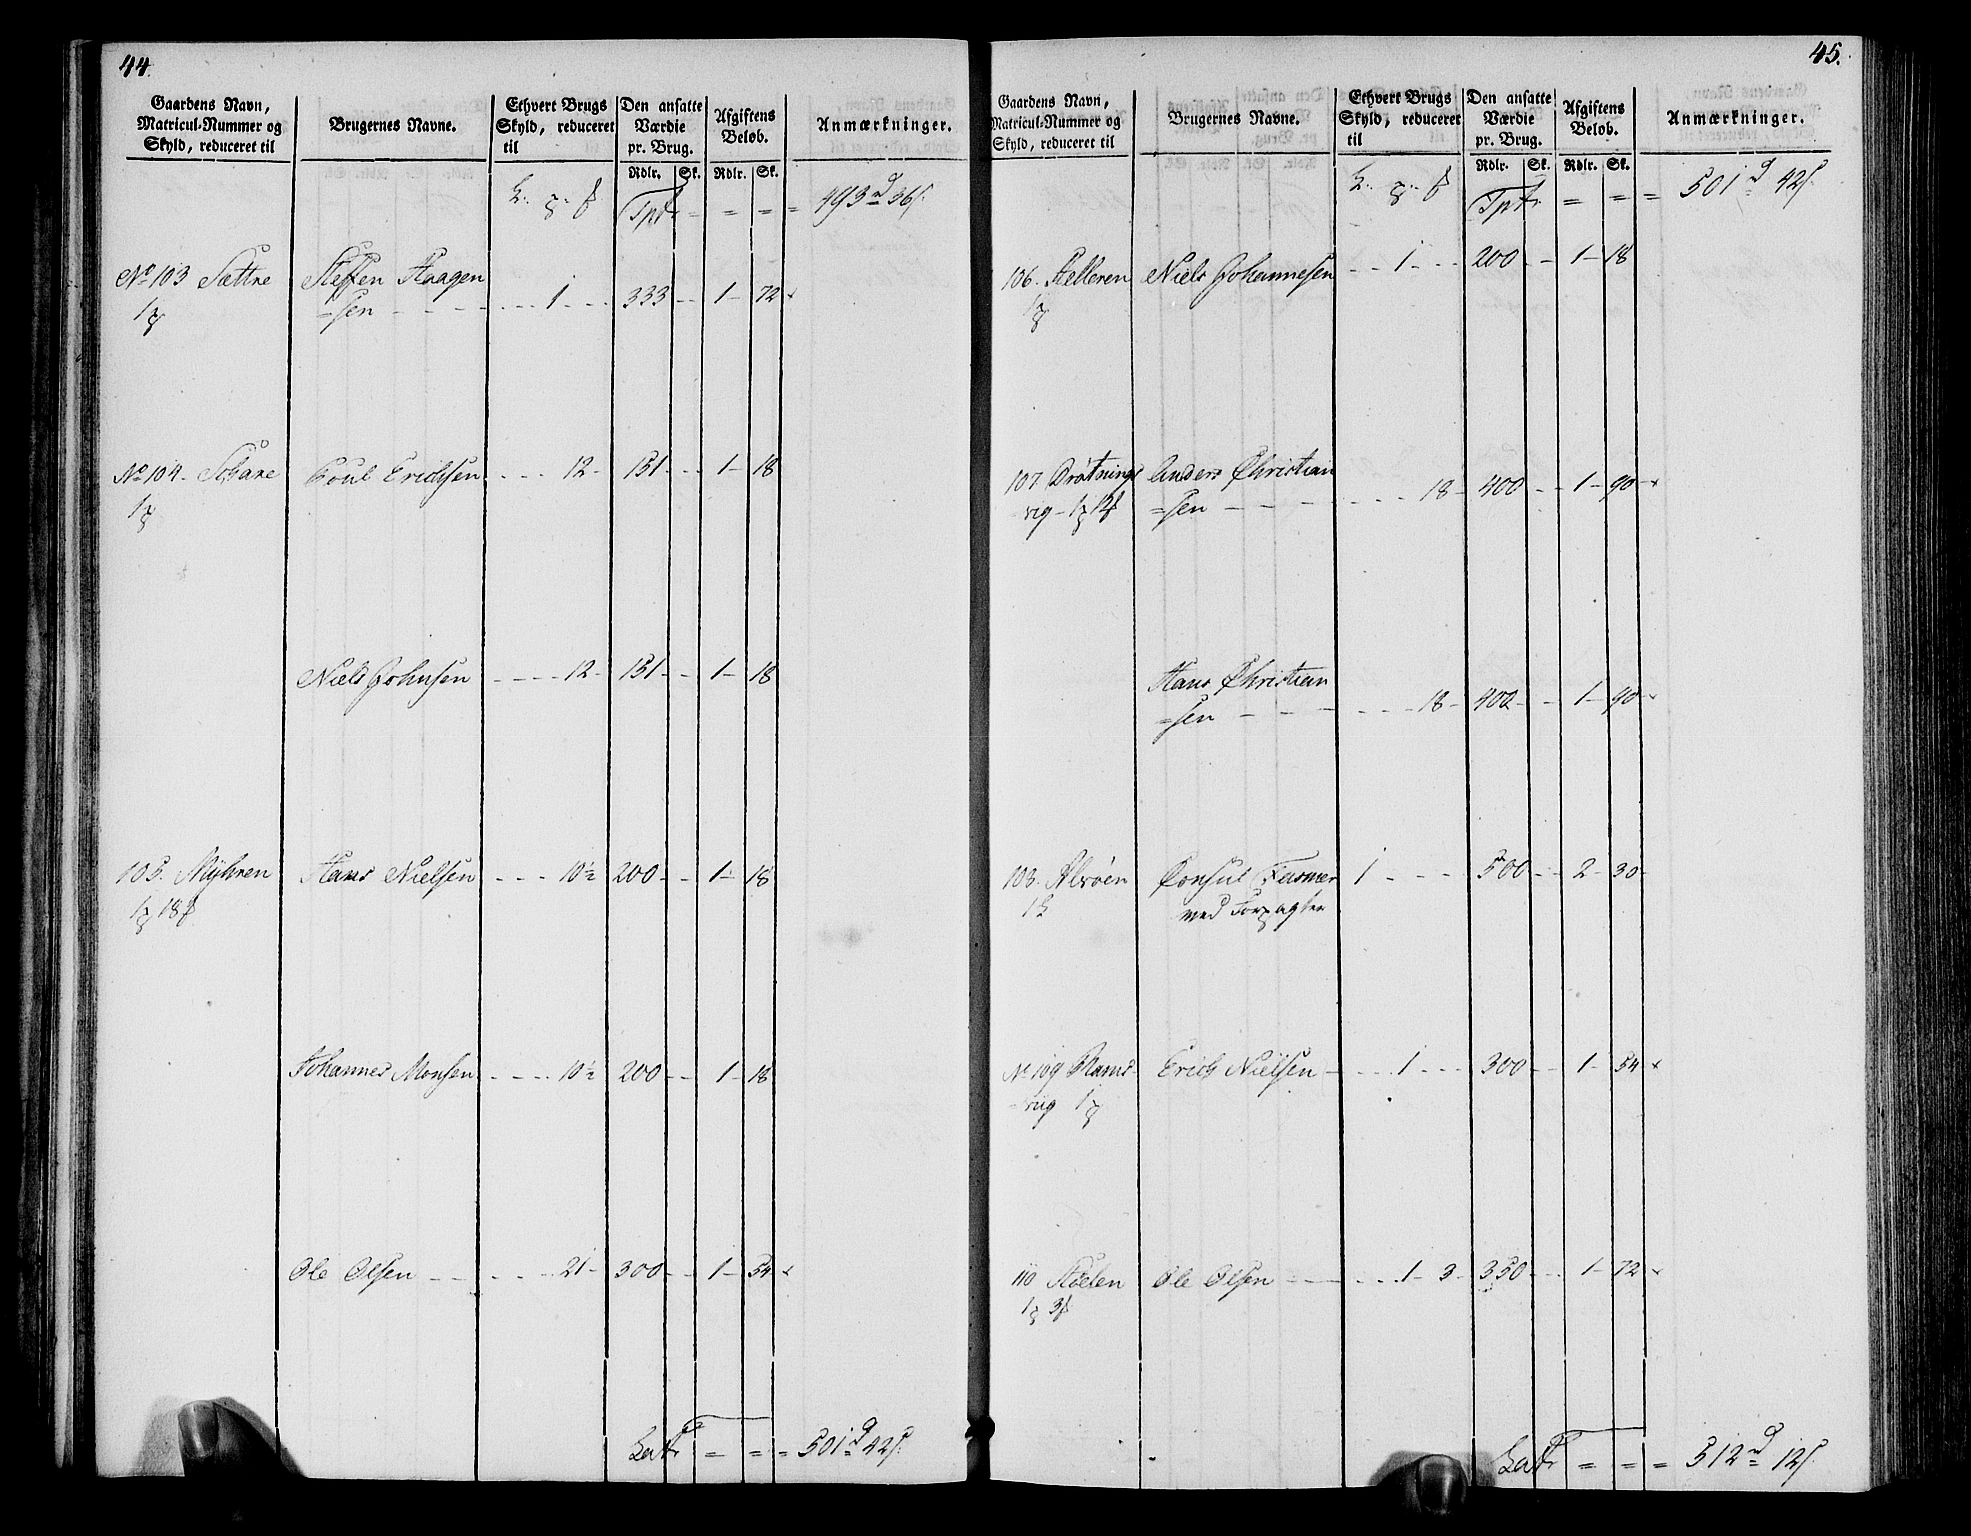 44.
Gaardens Navn, Matricul-Nummer og Skyld, reduceret til | Brugernes Navne. | Ethvert Brugs Skyld, reduceret til | Den ansatte Værdie pr. Brug. | Afgiftens Beløb. | Anmærkninger.
Rdlr. Sk. Rdlr. Sk.
Tptr = = = 493 d 36 s.
No 103 Sættre Steffen Haagen
=sen - - - - 1 - - 333 - - 1 - 72 x
1
No 104. Poul Erichsen - - - 12 - 151 - - 1 - 18
1
Niels Johnsen - - - - 12 - 151 - - 1 - 18
105. Myhren Hans Nielsen - - - 10½ 200 - - 1 - 18
1 18
Johannes Monsen - - - 10½ 200 - - 1 - 18
Ole Olsen - - - - - 21 - 300 - - 1 - 54 x
Latr = = = 501 d 42 s.
45.
Gaardens Navn, Matricul-Nummer og Skyld, reduceret til | Brugernes Navne. | Ethvert Brugs Skyld, reduceret til | Den ansatte Værdie pr. Brug. | Afgiftens Beløb. | Anmærkninger.
Rdlr. Sk. Rdlr. Sk.
Tptr = = = 501 d 42 s.
106. Helleren Niels Johannesen - - 1 - - - 200 - - 1 - 18
1
107 Drøtnings Anders Christian
vig - 1 12 =sen - - - - - 18 - 400 - - 1 - 90 x
Hans Christian
=sen - - - - - - 18 - 400 - - 1 - 90 x
108. Alvøen Consul Fasmer 1 - - - 500 - - 2 - 30
1 med Forpagter
No 109 Rams- Erich Nielsen - - - - 1 - - - 300 - - 1 - 54 x
vig 1
110 Ole Olsen - - - - - 1 - 3 - 350 - - 1 - 72 x
1 3
Latr = = = 512 d 12 s.